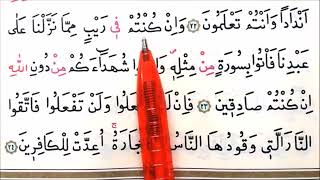 اَنْدَادًا وَاَنْتُمْ تَعْلَمُونَ ﴿٢٢﴾ وَاِنْ كُنْتُمْ فٖى رَيْبٍ مِمَّا نَزَّلْنَا عَلٰى
عَبْدِنَا فَاْتُوا بِسُورَةٍ مِنْ مِثْلِهٖ شُهَدَٓاءَكُمْ مِنْ دُونِ اللّٰهِ
اِنْ كُنْتُمْ صَادِقٖينَ ﴿٢٣﴾ فَاِنْ لَمْ تَفْعَلُوا وَلَنْ تَفْعَلُوا فَاتَّقُوا
النَّارَ الَّتٖى وَقُودُهَا النَّاسُ اُعِدَّتْ لِلْكَافِرٖينَ ﴿٢٤﴾